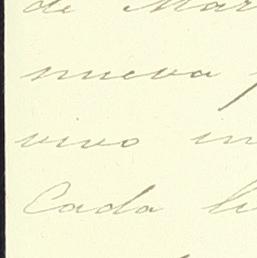 de Mar
nueva
vivo in
Cada li